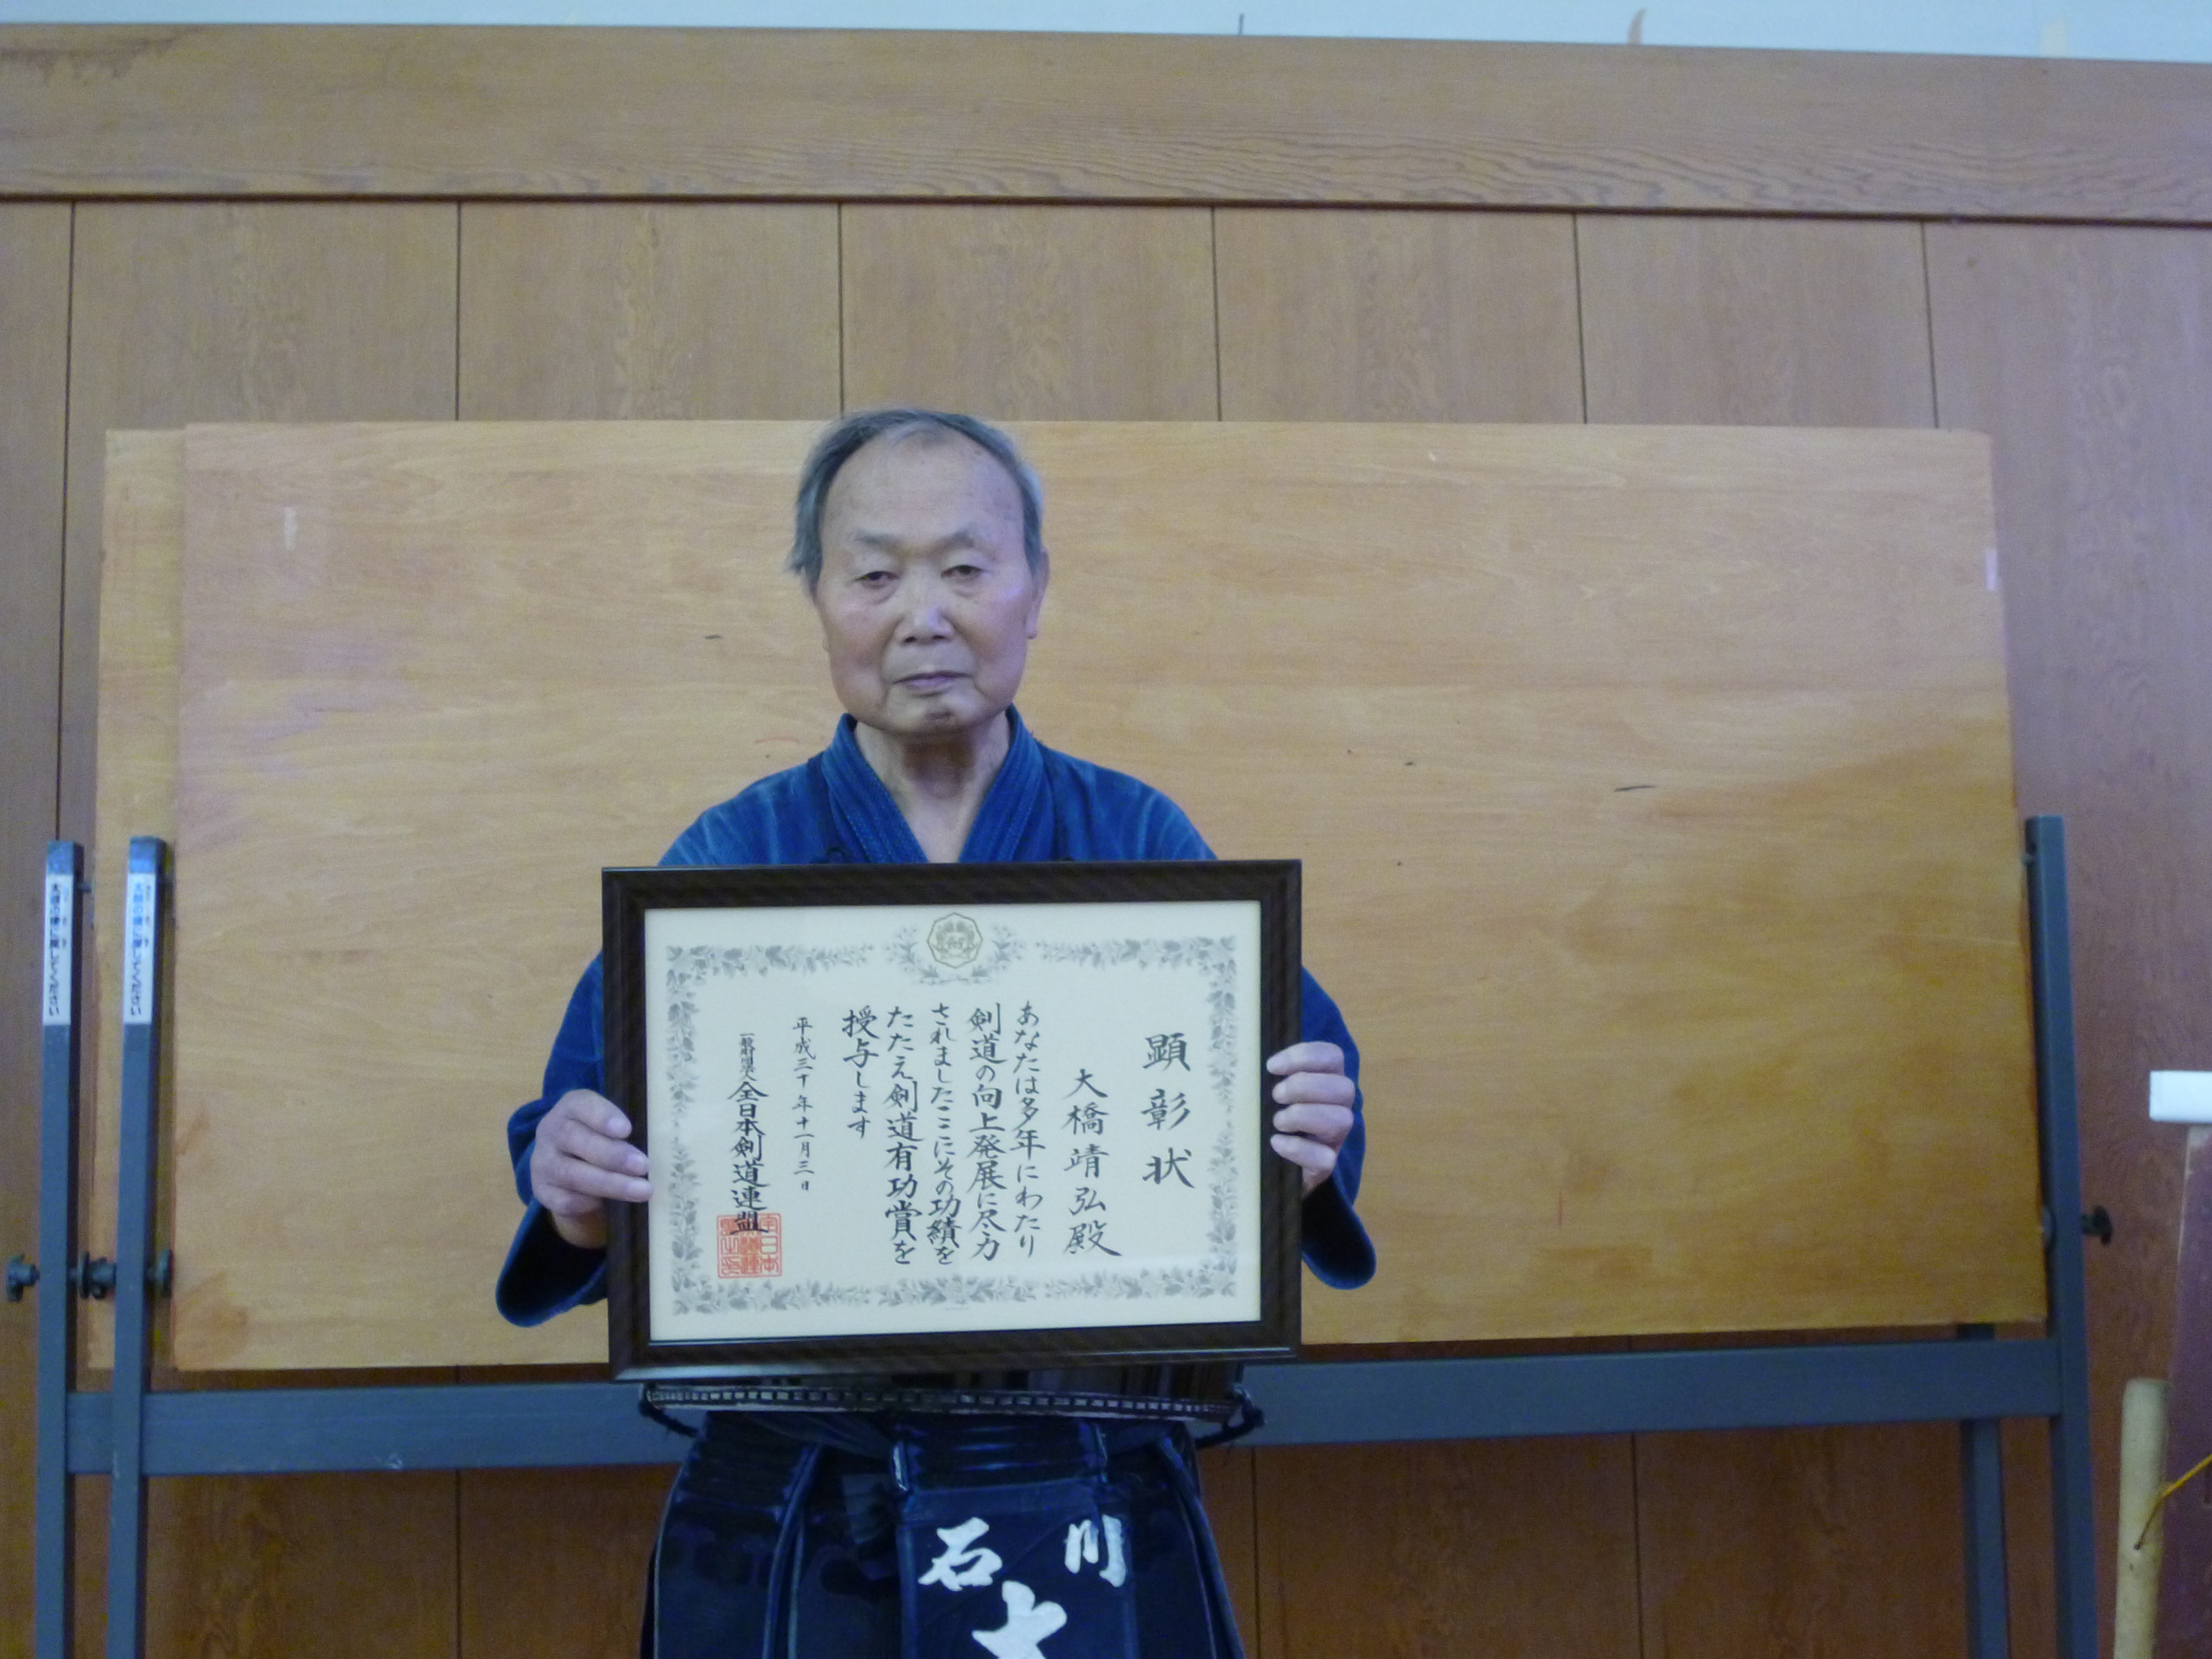 顕彰状
大橋靖弘殿
あなたは多年にわたり
剣道の向上発展に尽力
されましたここにその功績を
たたえ剣道有功賞を
授与します
平成三十年十一月三日
一般財団法人全日本剣道連盟
石川
大